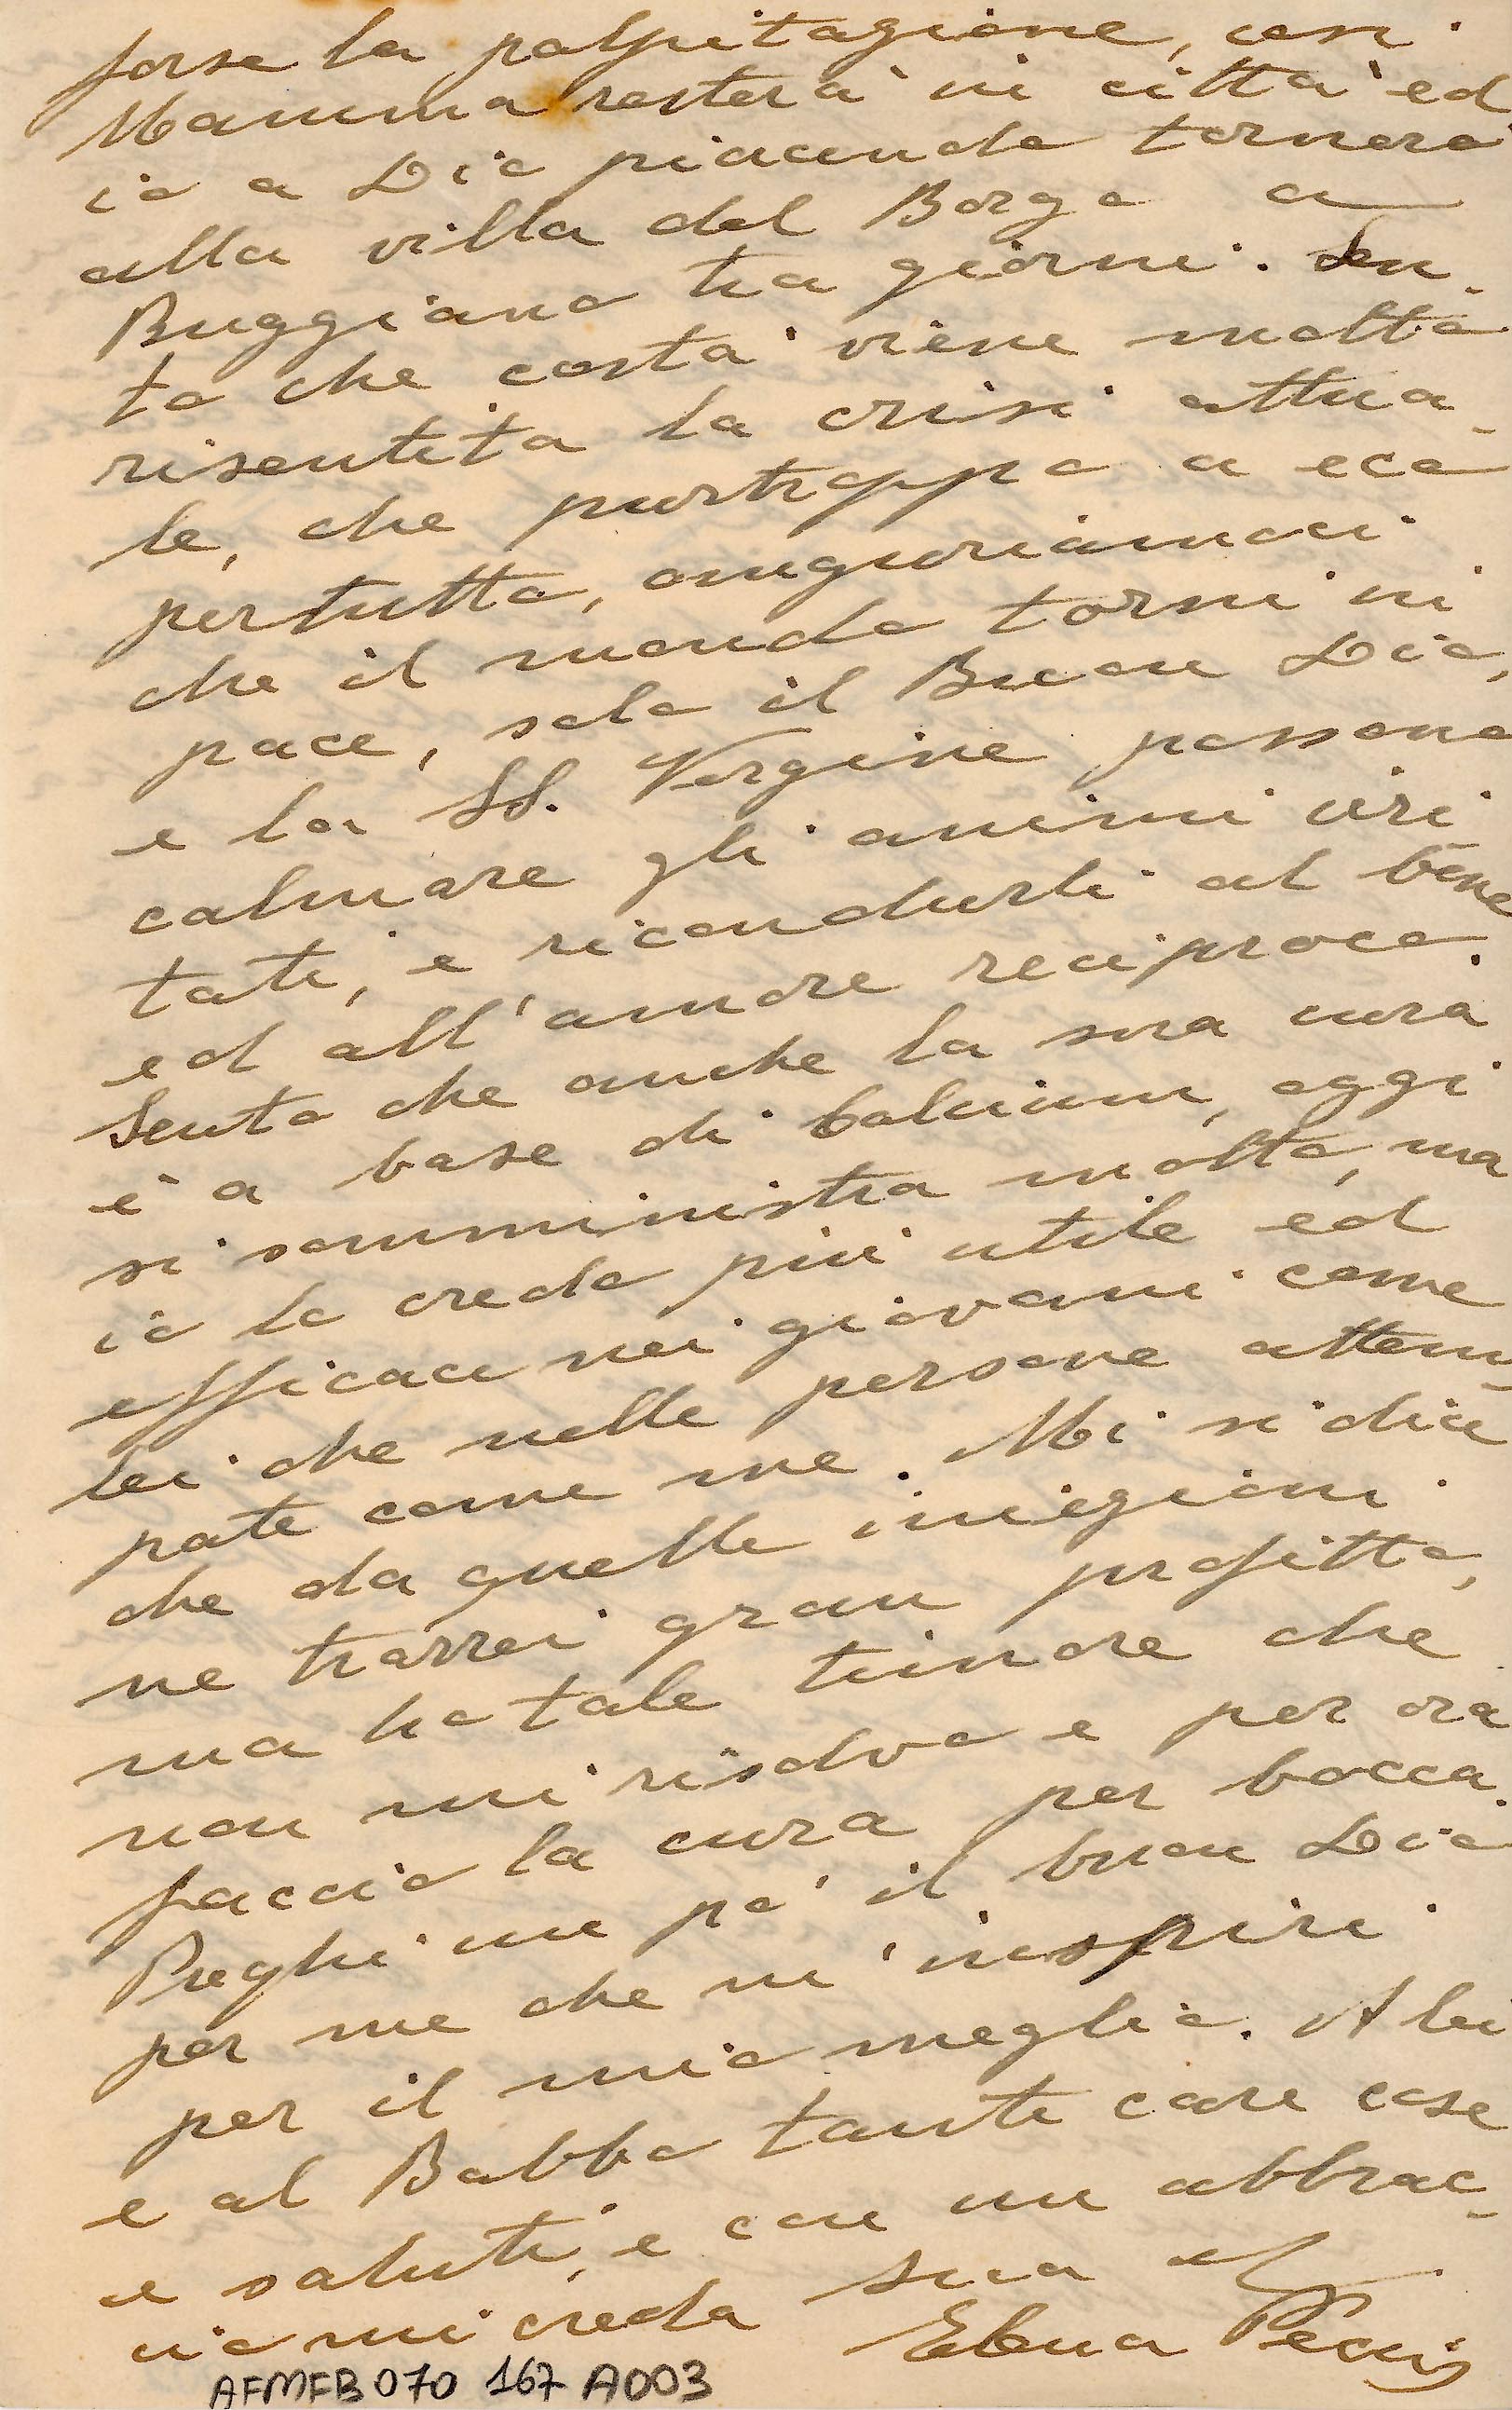 forse la palpitazione, così
Mamma resterà in città ed
io a Dio piacendo tornerò
alla villa del Borgo a
Buggiano tra giorni. Sen-
to che costà viene molto
risentita la crisi attua-
le, che purtroppo a eco
pertutto, auguriamoci
che il mondo torni in
pace, solo il Buon Dio,
e la SS. Vergine possono
calmare gli animi irri-
tati, e ricondurli al bene
ed all'amore reciproco.
Sento che anche la sua cura
è a base di Calcium, oggi
si somministra molto, ma
io lo credo più utile ed
efficace nei giovani come
lei che nelle persone attem-
pate come me. Mi si dice
che da quelle iniezioni
ne trarrei gran profitto,
ma ho tale timore che
non mi risolvo e per ora
faccio la cura per bocca.
Preghi un po' il buon Dio
per me che m'inspiri
per il mio meglio. A lei
e al Babbo tante care cose
e saluti, e con un abbrac-
cio mi creda sua aff.
Elena Pecci
AFMFB070 167 A003